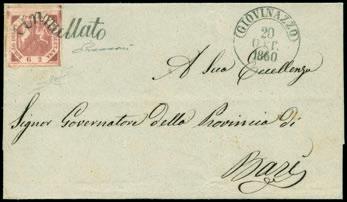 Annullato
(GIOVINAZZO)
20
1860
A Sua Eccellenza
Signor Governatore della Provincia di
Bari